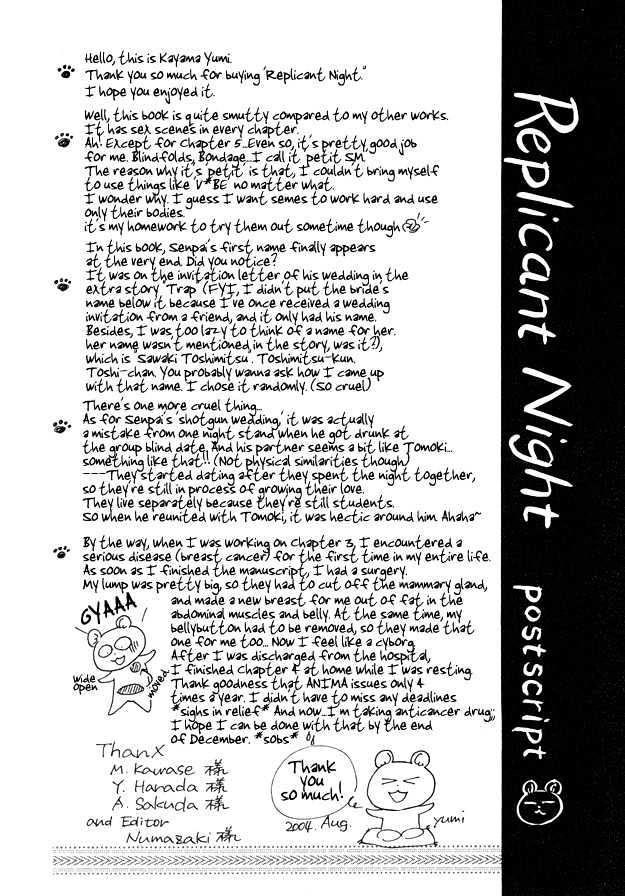 Replicant Night postscript
Hello, this is Kayama Yumi.
Thank you so much for buying "Replicant Night."
I hope you enjoyed it.
Well, this book is quite smutty compared to my other works.
It has sex scenes in every chapter.
Ah! Except for chapter 5...Even so, it's pretty good job
for me. Blindfolds, Bondage...I call it petit SM.
The reason why it's 'petit' is that, I couldn't bring myself
to use things like 'V*BE' no matter what.
I wonder why. I guess I want semes to work hard and use
only their bodies.
it's my homework to try them out sometime though
In this book, Senpai's first name finally appears
at the very end. Did you notice?
It was on the invitation letter of his wedding in the
extra story 'Trap' (FYI, I didn't put the bride's
name below it because I've once received a wedding
invitation from a friend, and it only had his name.
Besides, I was too lazy to think of a name for her.
her name wasn't mentioned in the story, was it?),
which is 'Sawaki Toshimitsu'. Toshimitsu-Kun.
Toshi-chan. You probably wanna ask how I came up
with that name. I chose it randomly. (So cruel)
There's one more cruel thing...
As for Senpai's 'shotgun wedding,' it was actually
a mistake from one night stand when he got drunk at
the group blind date. And his partner seems a bit like Tomoki...
something like that!! (Not physical similarities though)
----They started dating after they spent the night together,
so they're still in process of growing their love.
They live separately because they're still students.
So when he reunited with Tomoki, it was hectic around him. Ahaha~
By the way, when I was working on Chapter 3, I encountered a
serious disease (breast cancer) for the first time in my entire life.
As soon as I finished the manuscript, I had a surgery.
My lump was pretty big, so they had to cut off the mammary gland,
and made a new breast for me out of fat in the
abdominal muscles and belly. At the same time, my
bellybutton had to be removed, so they made that
one for me too... Now I feel like a cyborg.
After I was discharged from the hospital,
I finished chapter 4 at home while I was resting.
Thank goodness that ANIMA issues only 4
times a year. I didn't have to miss any deadlines
*sighs in relief* And now...I'm taking anticancer drug;;
I hope I can be done with that by the end
of December. *sobs*
GYAAA
wide
open
moved
ThanX
M. Kawase 様
Y. Harada 様
A. Sakuda 様
and Editor
Numazaki 様
Thank
you
so much!
2004. Aug.
yumi